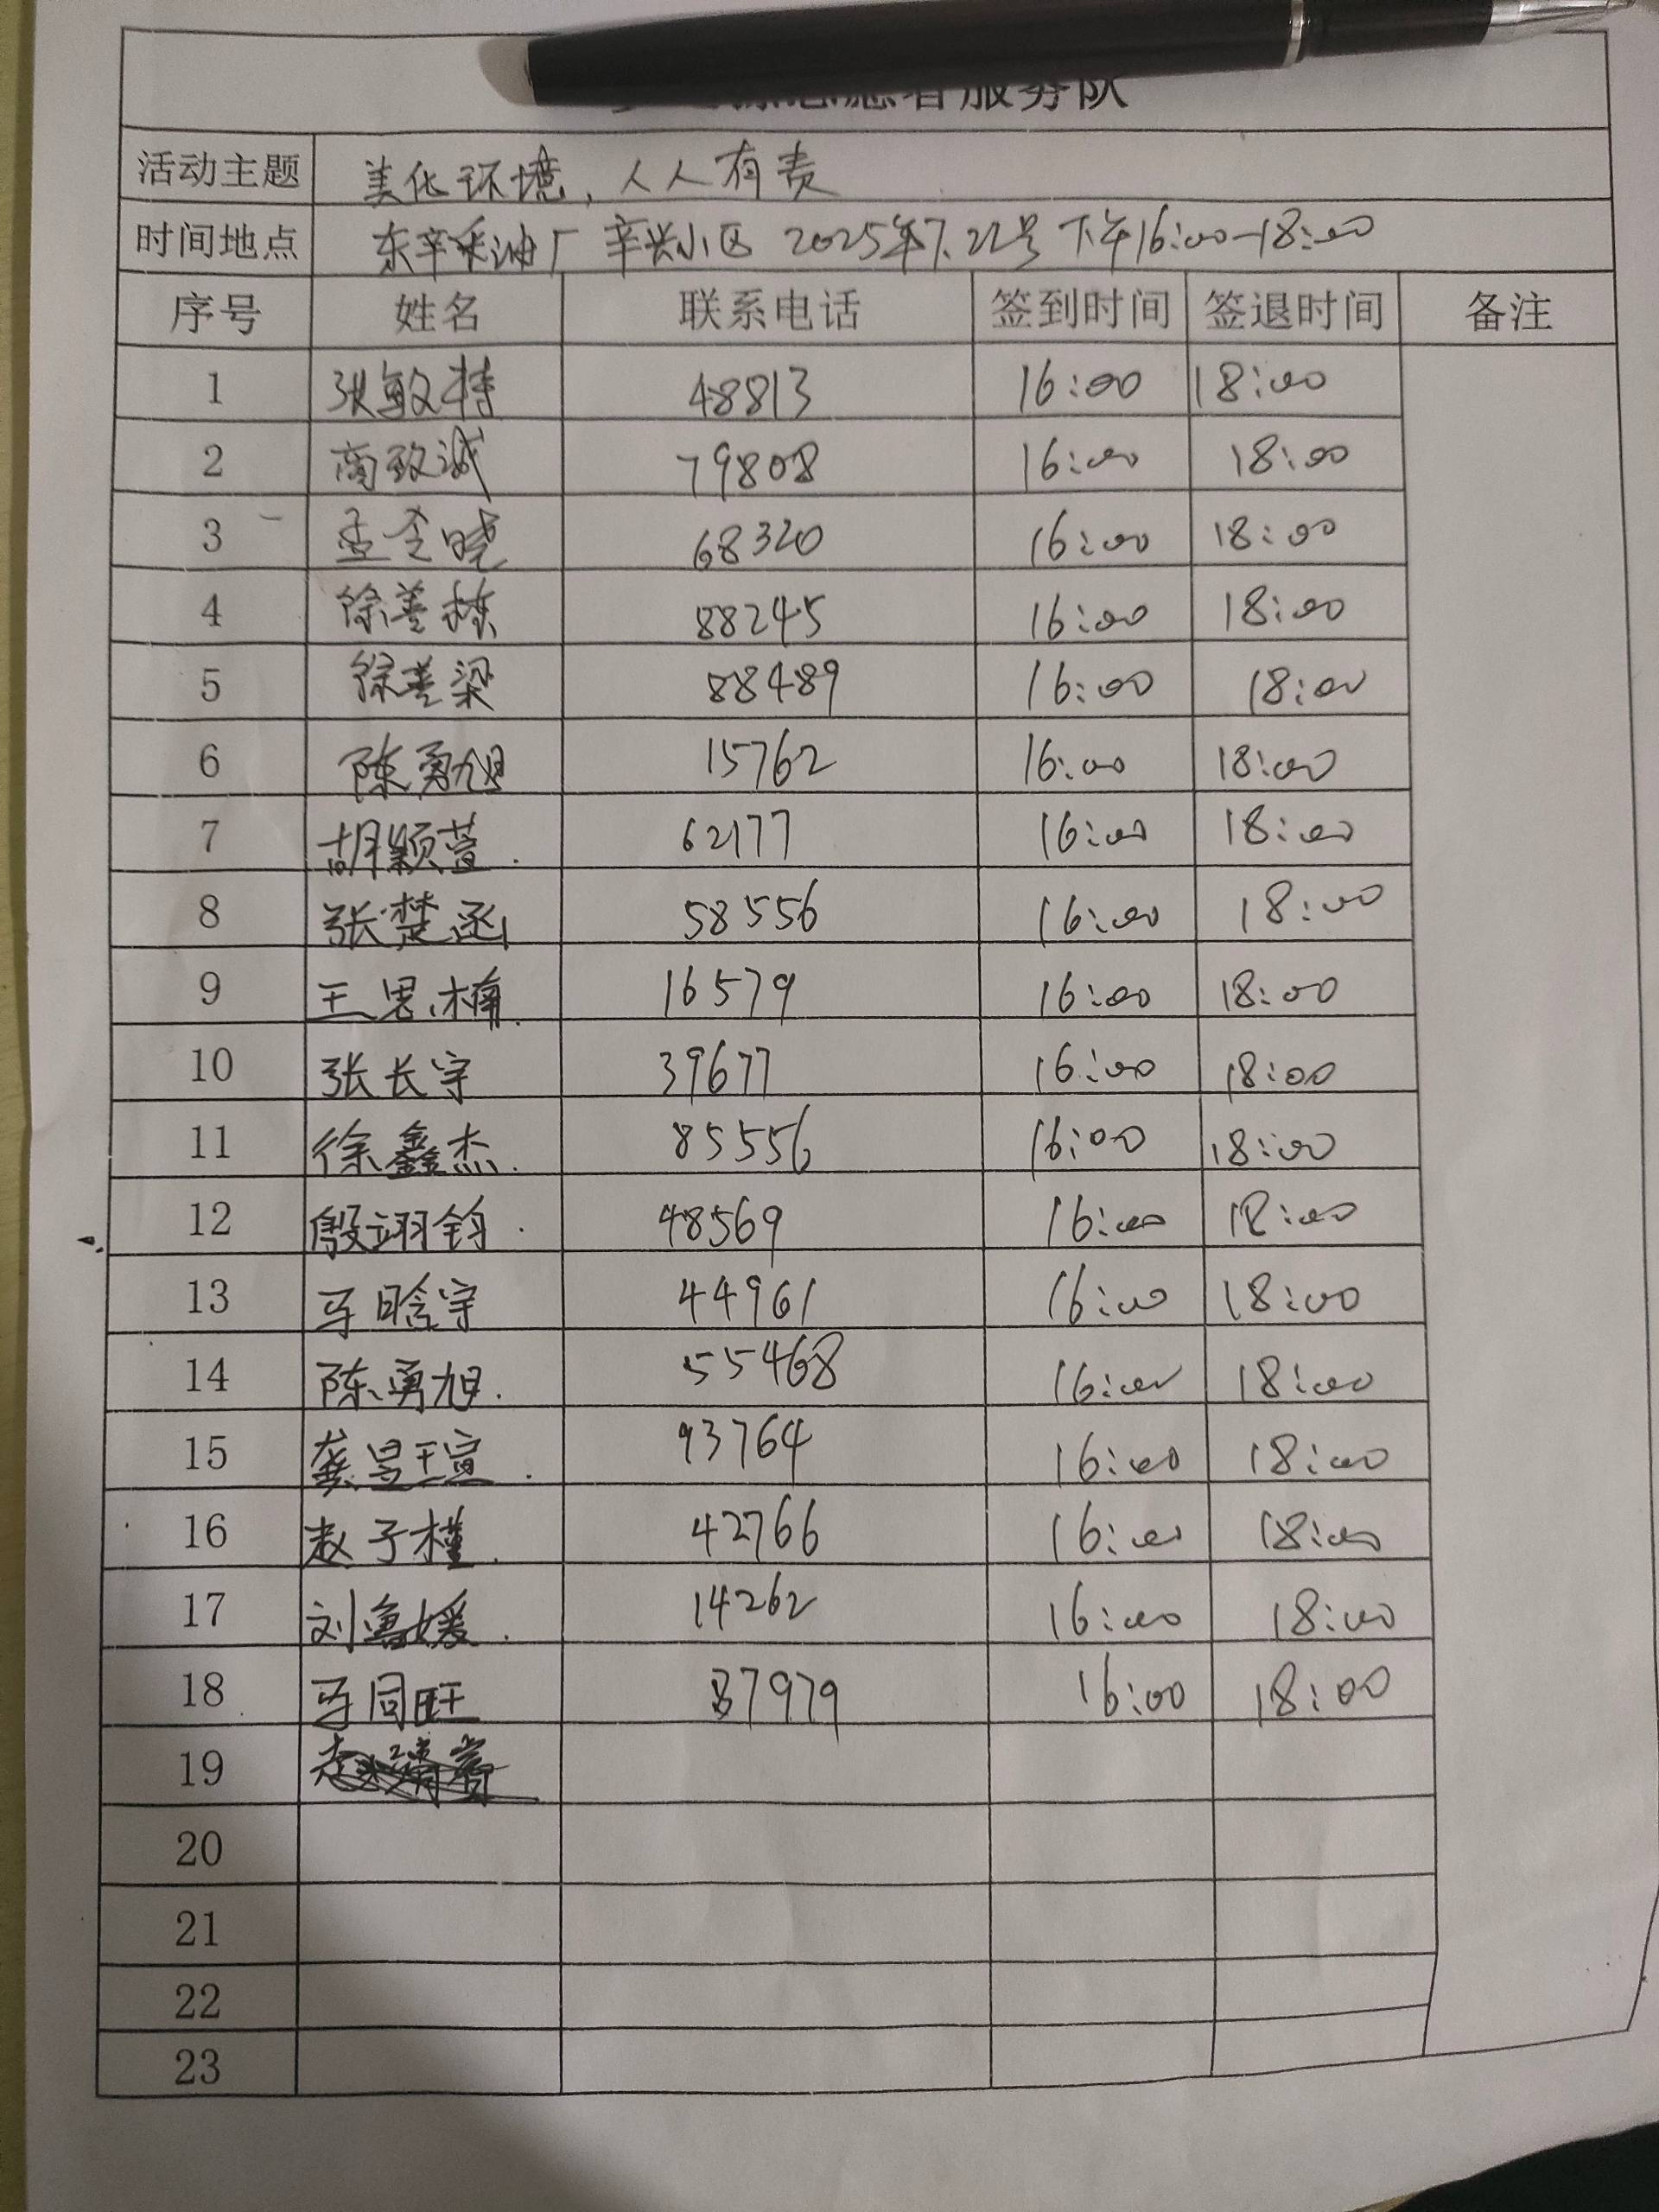 志愿者服务队
活动主题 美化环境，人人有责
时间地点 东辛采油厂 辛兴小区 2025年7.22号 下午16:00-18:00
序号 姓名 联系电话 签到时间 签退时间 备注
1 张敏特 48813 16:00 18:00
2 商致诚 79808 16:00 18:00
3 68320 16:00 18:00
4 徐善栋 88245 16:00 18:00
5 徐善梁 88489 16:00 18:00
6 陈勇旭 15762 16:00 18:00
7 胡颖萱. 62177 16:00 18:00
8 张楚函 58556 16:00 18:00
9 王思楠. 16579 16:00 18:00
10 张长宇 39677 16:00 18:00
11 徐鑫杰. 85556 16:00 18:00
12 殷翊钧. 48569 16:00 18:00
13 马晗宇 44961 16:00 18:00
14 陈勇旭. 55468 16:00 18:00
15 龚昱瑄. 93764 16:00 18:00
16 赵子槿. 42766 16:00 18:00
17 刘鲁媛. 14262 16:00 18:00
18 马同旺 37979 16:00 18:00
19
20
21
22
23